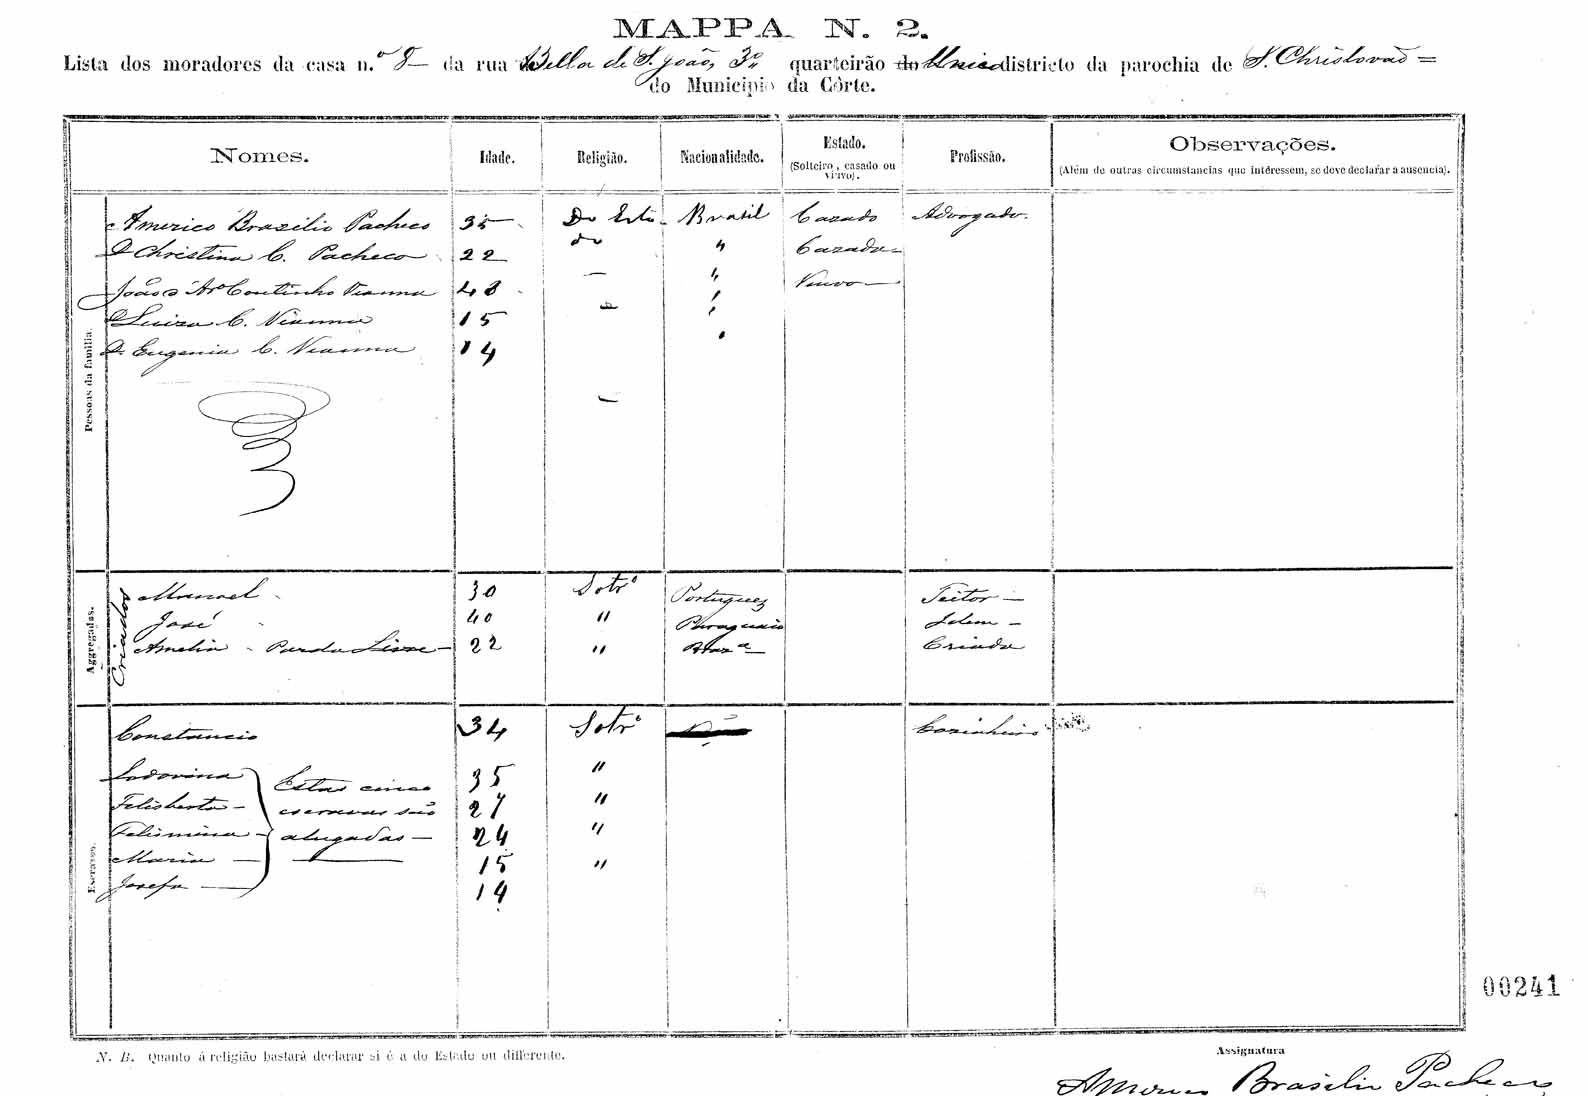 MAPPA N. 2.
Lista dos moradores da casa n.º 8 — da rua Bella de S. João, 3º quarteirão do Unico districto da parochia de S. Christovaõ =
do Municipio da Côrte.
Nomes. Idade. Religião. Nacionalidade. Estado. Profissão. Observações.
(Solteiro, casado ou viuvo). (Além de outras circumstancias que intéressem, se deve declarar a ausencia).
Pessoas da familia.
Americo Brazilio Pacheco 35 — Do Esto. Brasil Cazado Advogado.
D. Christina C. Pacheco 22 do " Cazada —
Coutinho Vianna 48 — " Viuvo —
D. Luiza C. Vianna 15 "
D. Eugenia C. Vianna 14
Aggregadas.
Criados
Manoel 30 Portuguez Feitor —
José 40 " Paraguaio Idem —
Amelia - Parda Livre — 22 " Braza — Criada
Escravos.
Constancio 34 Cozinheiro
Ludovina 35 "
Felisberta — 27 "
Felismina — 24 "
Maria — 15 "
Josefa — 14
Estas cinco
escravas são
alugadas —
00241
N. B. Quanto á religião bastará declarar si é a do Estado ou differente.
Assignatura
Americo Brasilio Pacheco